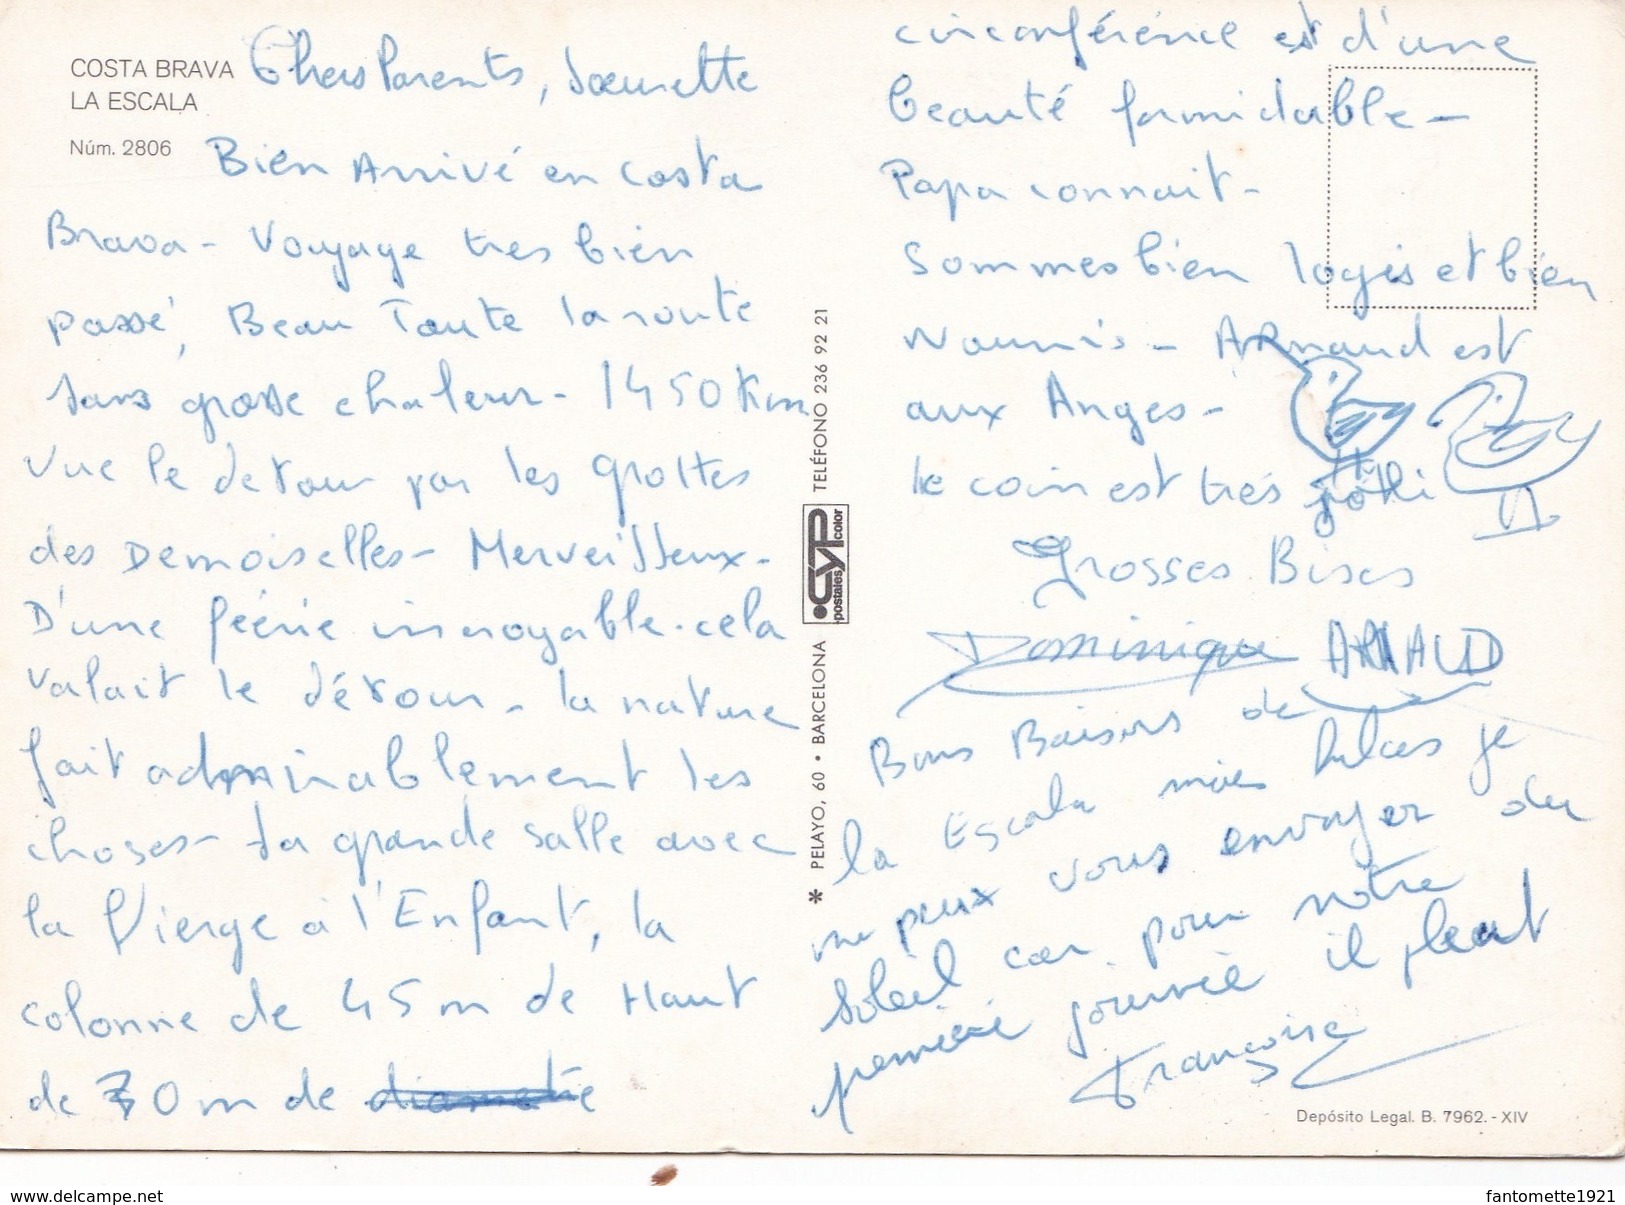 COSTA BRAVA
LA ESCALA
Núm. 2806
Chers Parents, Soeurette
Bien Arrivé en Costa
Brava - Voyage tres bien
passé, Beau Toute la route
sans grosse chaleur - 1450 Km
vue le detour par les grottes
des Demoiselles - Merveilleux -
D'une féérie incroyable. cela
valait le détour - la nature
fait admirablement les
choses - la grande salle avec
la Vierge à l'Enfant, la
colonne de 45 m de Haut
de 70 m de
circonférence est d'une
beauté formidable -
Papa connait -
Sommes bien logés et bien
Nourris - ARnaud est
aux Anges -
le coin est très joli
Grosses Bises
Dominique ARNAUD
Bons Baisers de
la Escala mais hélas je
ne peux vous envoyer du
Soleil car pour notre
première journée il pleut
Françoise
PELAYO, 60 • BARCELONA
CYP
postales color
TELÉFONO 236 92 21
Depósito Legal. B. 7962. - XIV
www.delcampe.net
fantomette1921